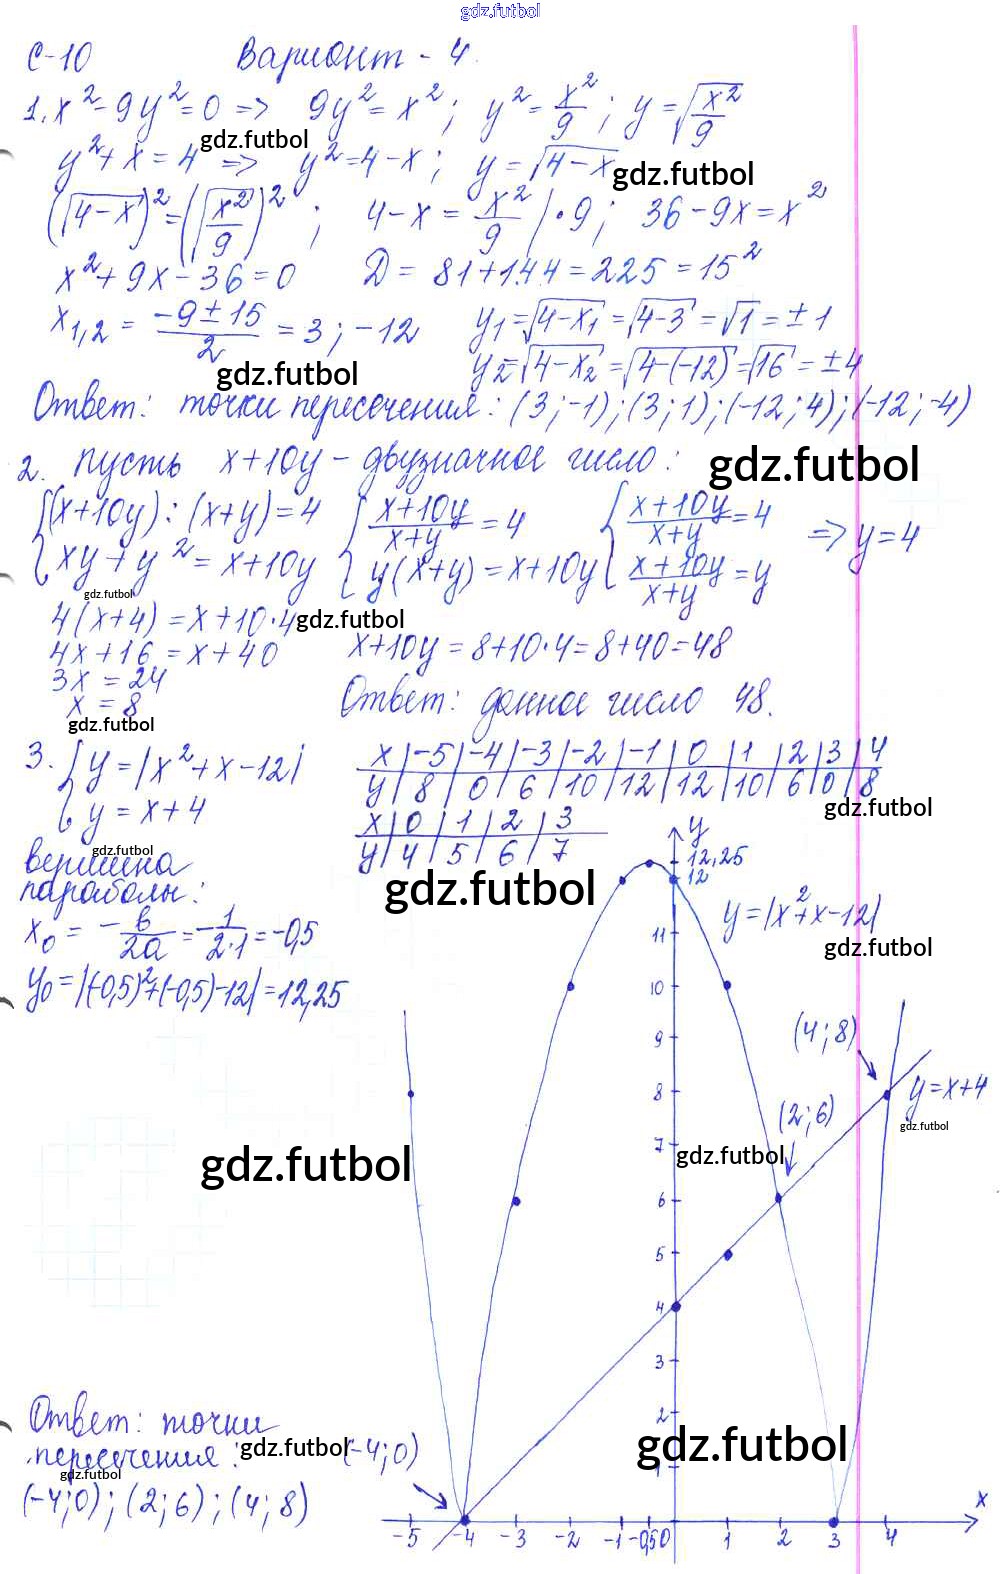 gdz.futbol
С-10 Вариант - 4.
1. x² - 9y² = 0 => 9y² = x² ; y² = x²/9 ; y = √(x²/9)
gdz.futbol
y² + x = 4 => y² = 4 - x ; y = √(4 - x)
gdz.futbol
(√(4 - x))² = (√(x²/9))² ; 4 - x = x²/9 | · 9 ; 36 - 9x = x²
x² + 9x - 36 = 0 D = 81 + 144 = 225 = 15²
x1,2 = (-9 ± 15)/2 = 3 ; -12 y1 = √(4 - x1) = √(4 - 3) = √1 = ± 1
y2 = √(4 - x2) = √(4 - (-12)) = √16 = ± 4
gdz.futbol
Ответ: точки пересечения: (3 ; -1) ; (3 ; 1) ; (-12 ; 4) ; (-12 ; -4)
2. Пусть x + 10y - двузначное число:
gdz.futbol
{ (x + 10y) : (x + y) = 4 { (x + 10y)/(x + y) = 4 { (x + 10y)/(x + y) = 4 => y = 4
xy + y² = x + 10y y(x + y) = x + 10y (x + 10y)/(x + y) = y
gdz.futbol
4(x + 4) = x + 10 · 4
gdz.futbol
4x + 16 = x + 40 x + 10y = 8 + 10 · 4 = 8 + 40 = 48
3x = 24
x = 8 Ответ: данное число 48.
gdz.futbol
3. { y = |x² + x - 12| x | -5 | -4 | -3 | -2 | -1 | 0 | 1 | 2 | 3 | 4
y | 8 | 0 | 6 | 10 | 12 | 12 | 10 | 6 | 0 | 8
y = x + 4
gdz.futbol
x | 0 | 1 | 2 | 3
y | 4 | 5 | 6 | 7
gdz.futbol
вершина
параболы:
gdz.futbol
x0 = - в/2a = - 1/(2·1) = -0,5
y0 = |(-0,5)² + (-0,5) - 12| = 12,25
y
12,25
12
y = |x² + x - 12|
gdz.futbol
11
10
9
(4 ; 8)
8
y = x + 4
gdz.futbol
(2 ; 6)
7
gdz.futbol
gdz.futbol
6
5
4
3
2
1
gdz.futbol
Ответ: точки
пересечения:
gdz.futbol
(-4 ; 0)
gdz.futbol
(-4 ; 0) ; (2 ; 6) ; (4 ; 8)
x
-5 -4 -3 -2 -1 -0,5 0 1 2 3 4